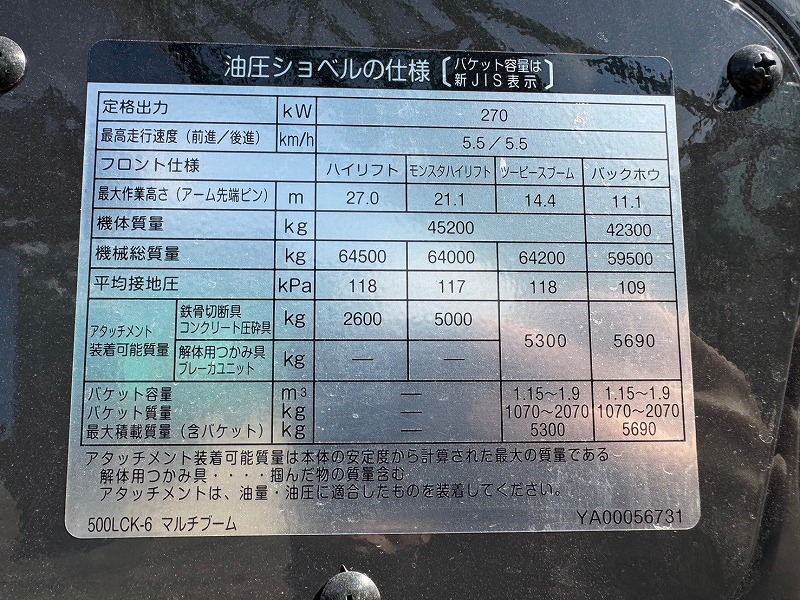 油圧ショベルの仕様〔バケット容量は新JIS表示〕
定格出力 kW 270
最高走行速度（前進／後進） km/h 5.5／5.5
フロント仕様 ハイリフト モンスタハイリフト ツーピースブーム バックホウ
最大作業高さ（アーム先端ピン） m 27.0 21.1 14.4 11.1
機体質量 kg 45200 42300
機械総質量 kg 64500 64000 64200 59500
平均接地圧 kPa 118 117 118 109
アタッチメント装着可能質量
鉄骨切断具 コンクリート圧砕具 kg 2600 5000 5300 5690
解体用つかみ具 ブレーカユニット kg — —
バケット容量 m³ — 1.15～1.9 1.15～1.9
バケット質量 kg — 1070～2070 1070～2070
最大積載質量（含バケット） kg — 5300 5690
アタッチメント装着可能質量は本体の安定度から計算された最大の質量である
解体用つかみ具・・・・掴んだ物の質量含む
アタッチメントは、油量・油圧に適合したものを装着してください。
500LCK-6 マルチブーム YA00056731